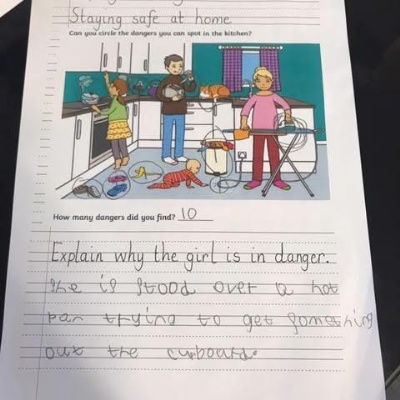 Staying safe at home
Can you circle the dangers you can spot in the kitchen?
How many dangers did you find? 10
Explain why the girl is in danger.
She is stood over a hot
pan trying to get something
out the cuboard.